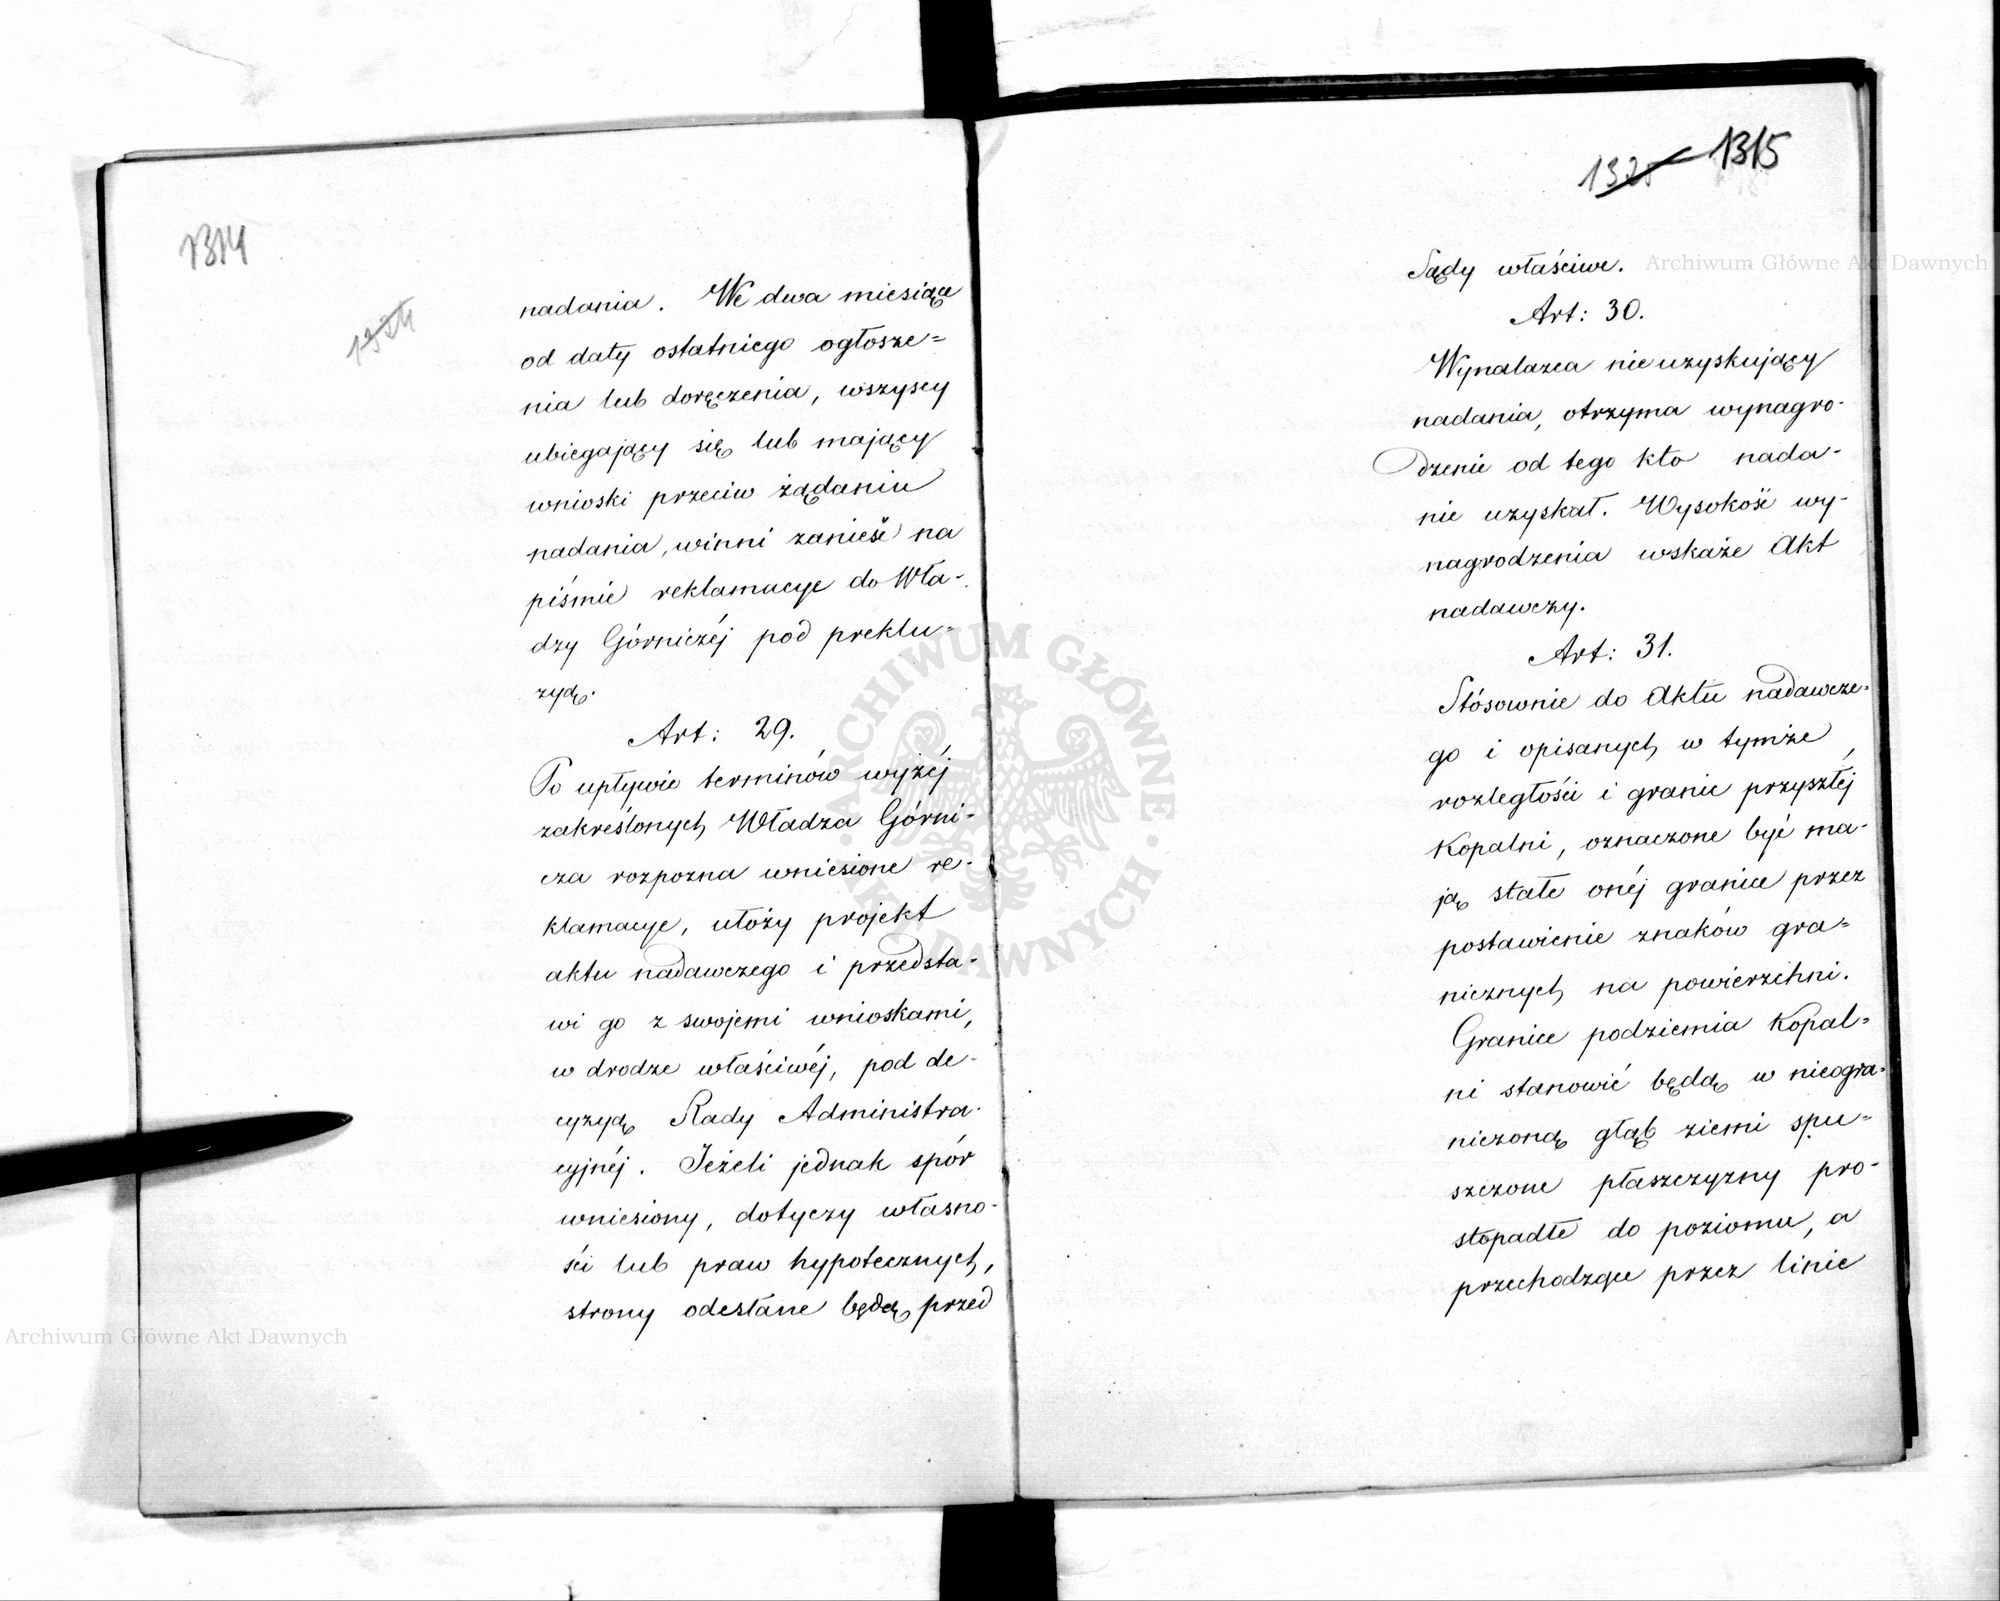 1314
1324
nadania. We dwa miesiące
od daty ostatniego ogłosze=
nia lub doręczenia, wszyscy
ubiegający się lub mający
wnioski przeciw żądaniu
nadania, winni zanieść na
piśmie reklamacye do Wła-
dzy Górniczéj pod preklu-
zyą.
Art: 29.
Po upływie terminów wyżéj
zakreślonych Władza Górni-
cza rozpozna wniesione re-
klamacye, ułoży projekt
aktu nadawczego i przedsta-
wi go z swojemi wnioskami,
w drodze właściwéj, pod de-
cyzyą Rady Administra-
cyjnéj. Jeżeli jednak spór
wniesiony, dotyczy własno-
ści lub praw hypotecznych,
strony odesłane będą przed
1325 1315
Sądy właściwe.
Art: 30.
Wynalazca nieuzyskujący
nadania, otrzyma wynagro-
dzenie od tego kto nada-
nie uzyskał. Wysokość wy-
nagrodzenia wskaże Akt
nadawczy.
Art: 31.
Stósownie do Aktu nadawcze-
go i opisanych w tymże,
rozległości i granic przyszłéj
Kopalni, oznaczone być ma-
ją stałe onéj granice przez
postawienie znaków gra=
nicznych na powierzchni.
Granice podziemia Kopal=
ni stanowić będą w nieogra-
niczoną głąb ziemi spu=
szczone płaszczyzny pro-
stopadłe do poziomu, a
przechodzące przez linie
Archiwum Główne Akt Dawnych
Archiwum Główne Akt Dawnych
ARCHIWUM GŁÓWNE AKT DAWNYCH